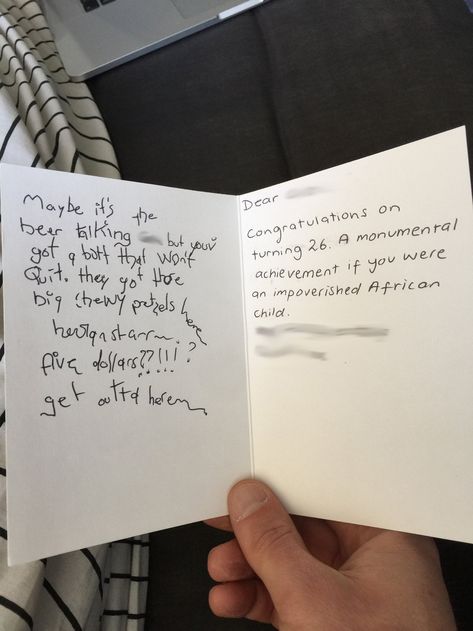 Maybe it's the
beer talking but your
got a butt that won't
Quit. they got those
big chewy pretzels here
five dollars??!!!?
get outta here
Dear
Congratulations on
turning 26. A monumental
achievement if you were
an impoverished African
child.